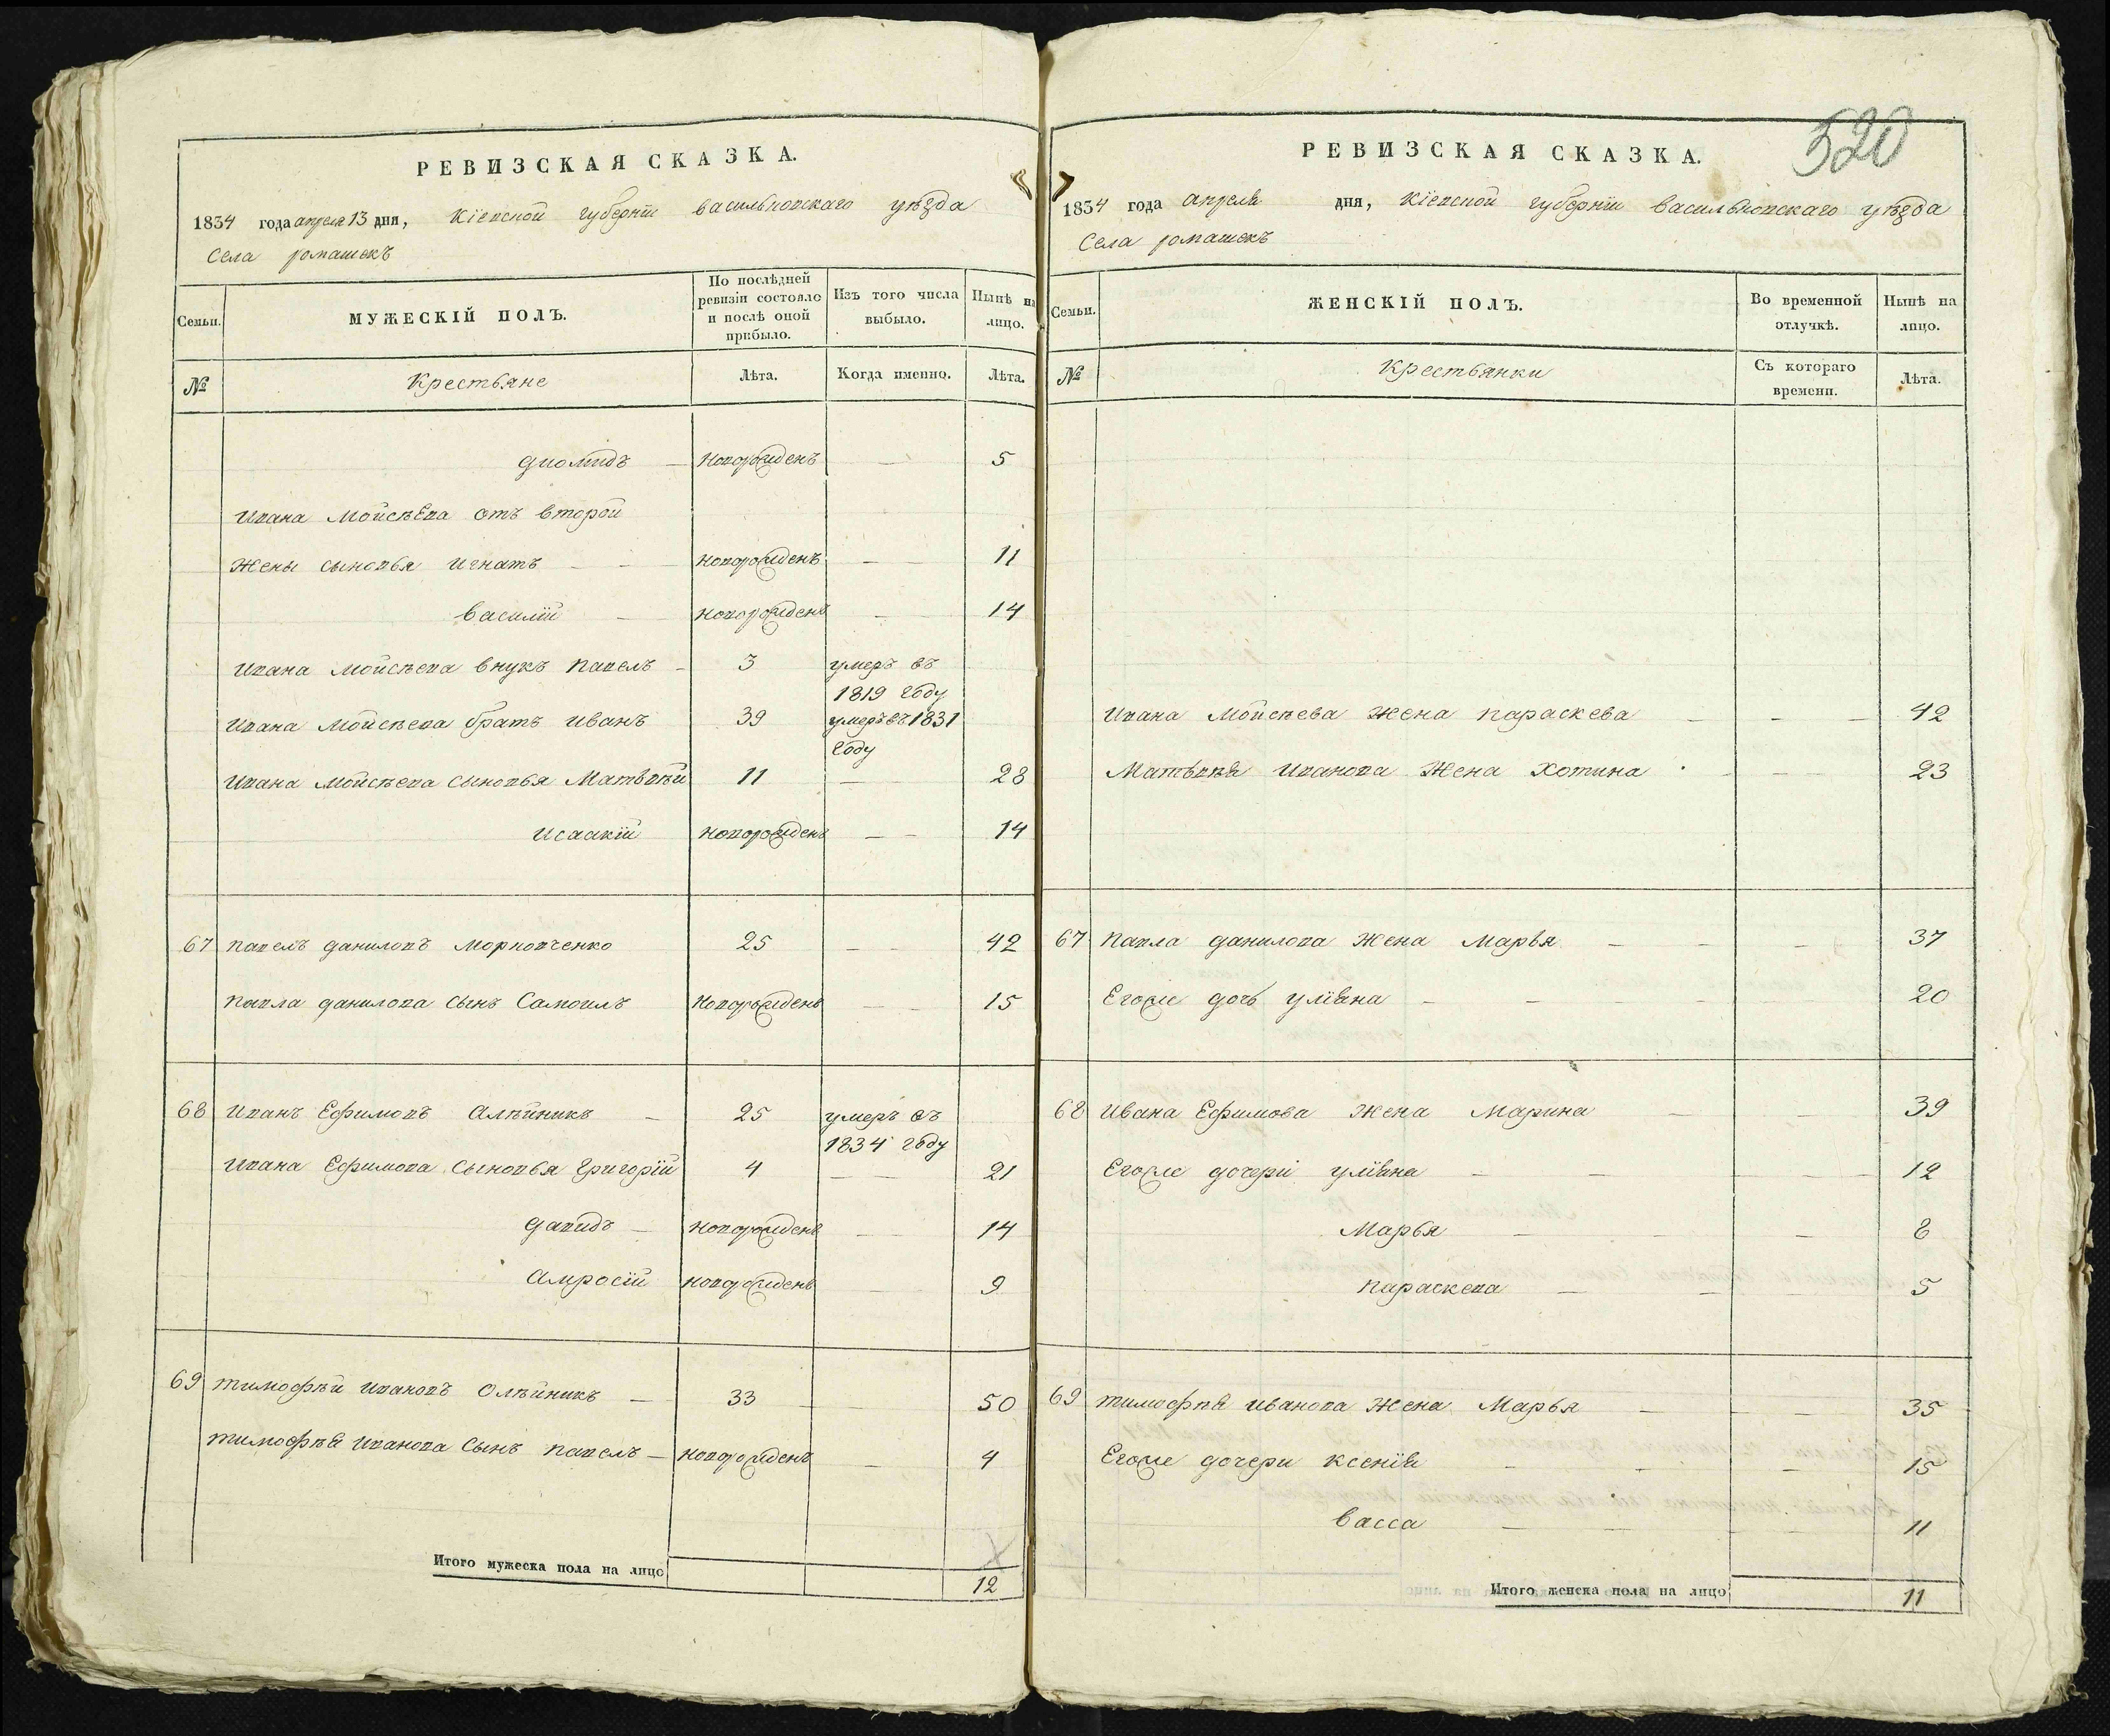 РЕВИЗСКАЯ СКАЗКА.
1834 года апреля 13 дня, Кіевской губерніи васильковскаго уѣзда
Села ромашекъ
Семьи.
МУЖЕСКІЙ ПОЛЪ.
По послѣдней ревизіи состояло и послѣ оной прибыло.
Изъ того числа выбыло.
Нынѣ на лицо.
№
Крестьяне
Лѣта.
Когда именно.
Лѣта.
Диомидъ — новорожденъ — 5
Ивана Мойсѣева отъ второй
Жены сыновья Игнатъ — — новорожденъ — — 11
Василій — новорожденъ — 14
Ивана Мойсѣева внукъ Павелъ — 3 умеръ въ
1819 году
Ивана Мойсѣева братъ Иванъ 39 умеръ въ 1831
году
Ивана Мойсѣева сыновья Матвѣй 11 — 28
Исаакій новорожденъ — — 14
67 Павелъ Даниловъ Морновченко 25 — — 42
Павла Данилова сынъ Самоилъ новорожденъ — — 15
68 Иванъ Ефимовъ Алѣйникъ — 25 умеръ въ
1834 году
Ивана Ефимова сыновья Григорій 4 — — 21
Давидъ — новорожденъ — — 14
Амросій новорожденъ — — 9
69 Тимофѣй Ивановъ Олѣйникъ — 33 — — 50
Тимофѣя Иванова сынъ Павелъ — новорожденъ — 4
Итого мужеска пола на лицо
12
520
РЕВИЗСКАЯ СКАЗКА.
1834 года апреля дня, Кіевской губерніи васильковскаго уѣзда
Села ромашекъ
Семьи.
ЖЕНСКІЙ ПОЛЪ.
Во временной отлучкѣ.
Нынѣ на лицо.
№
Крестьянки
Съ котораго времени.
Лѣта.
Ивана Мойсѣева жена Параскева — — — 42
Матвѣя Иванова жена Хотина — — — 23
67 Павла Данилова жена Марья — — — 37
Егоже дочь Улiяна — — — — 20
68 Ивана Ефимова жена Марина — — 39
Егоже дочери Улiяна — — — — 12
Марья — — — 8
Параскева — — — 5
69 Тимофѣя Иванова жена Марья — — — 35
Егоже дочери Ксенія — — — 15
Васса — — — — 11
Итого женска пола на лицо
11